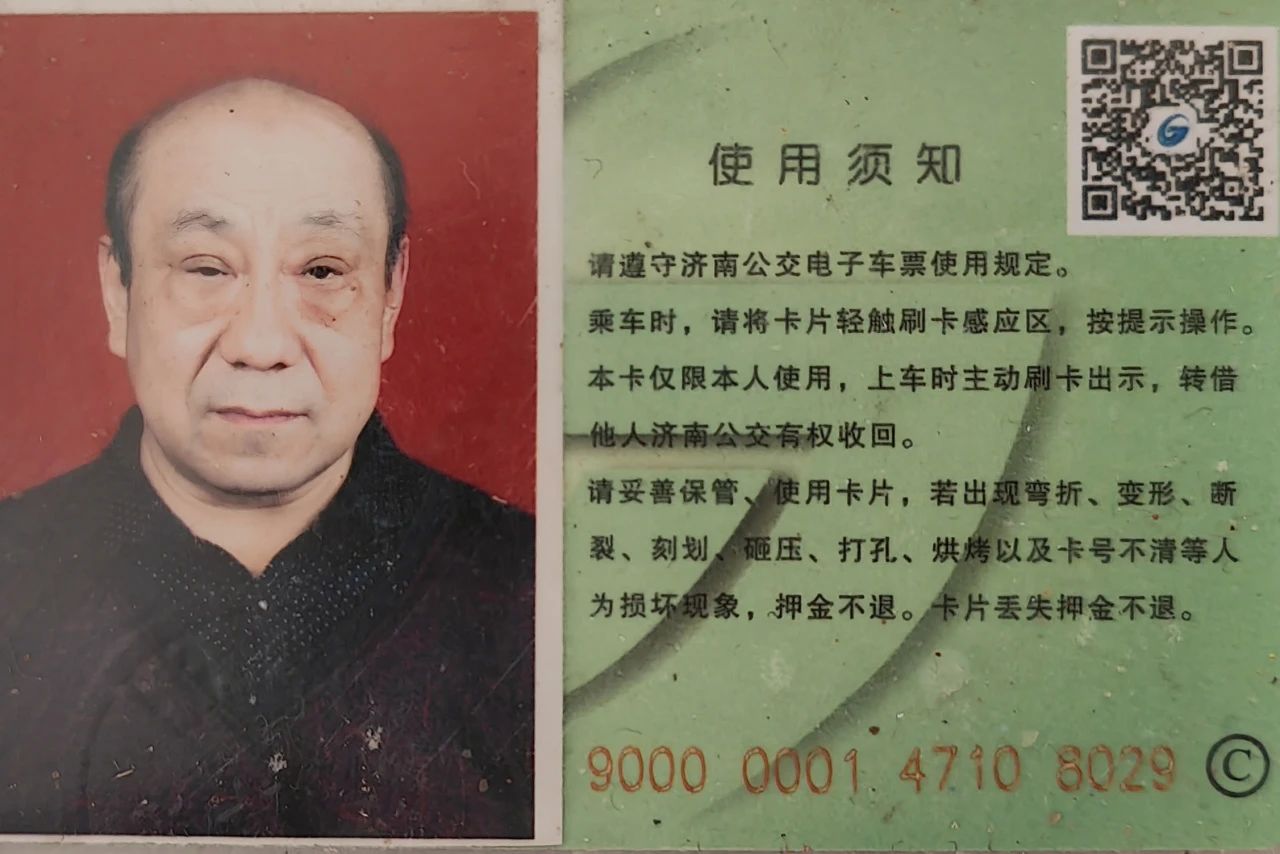 使用须知
请遵守济南公交电子车票使用规定。
乘车时，请将卡片轻触刷卡感应区，按提示操作。
本卡仅限本人使用，上车时主动刷卡出示，转借
他人济南公交有权收回。
请妥善保管、使用卡片，若出现弯折、变形、断
裂、刻划、砸压、打孔、烘烤以及卡号不清等人
为损坏现象，押金不退。卡片丢失押金不退。
9000 0001 4710 8029 ©